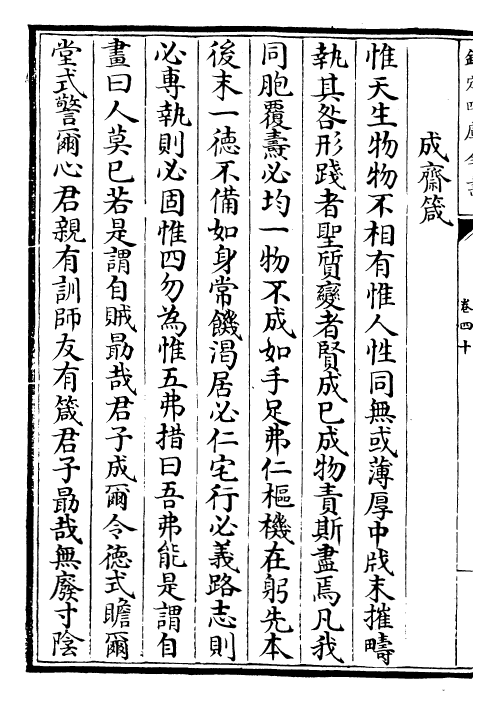 欽定四庫全書
卷四十
成齋箴
惟天生物物不相有惟人性同無或薄厚中戕末摧疇
執其咎形踐者聖質變者賢成已成物責斯盡焉凡我
同胞覆壽必均一物不成如手足弗仁樞機在躬先本
後末一徳不備如身常饑渴居必仁宅行必義路志則
必專執則必固惟四勿為惟五弗措曰吾弗能是謂自
畫曰人莫已若是謂自賊勗哉君子成爾令徳式瞻爾
堂式警爾心君親有訓師友有箴君子勗哉無廢寸陰